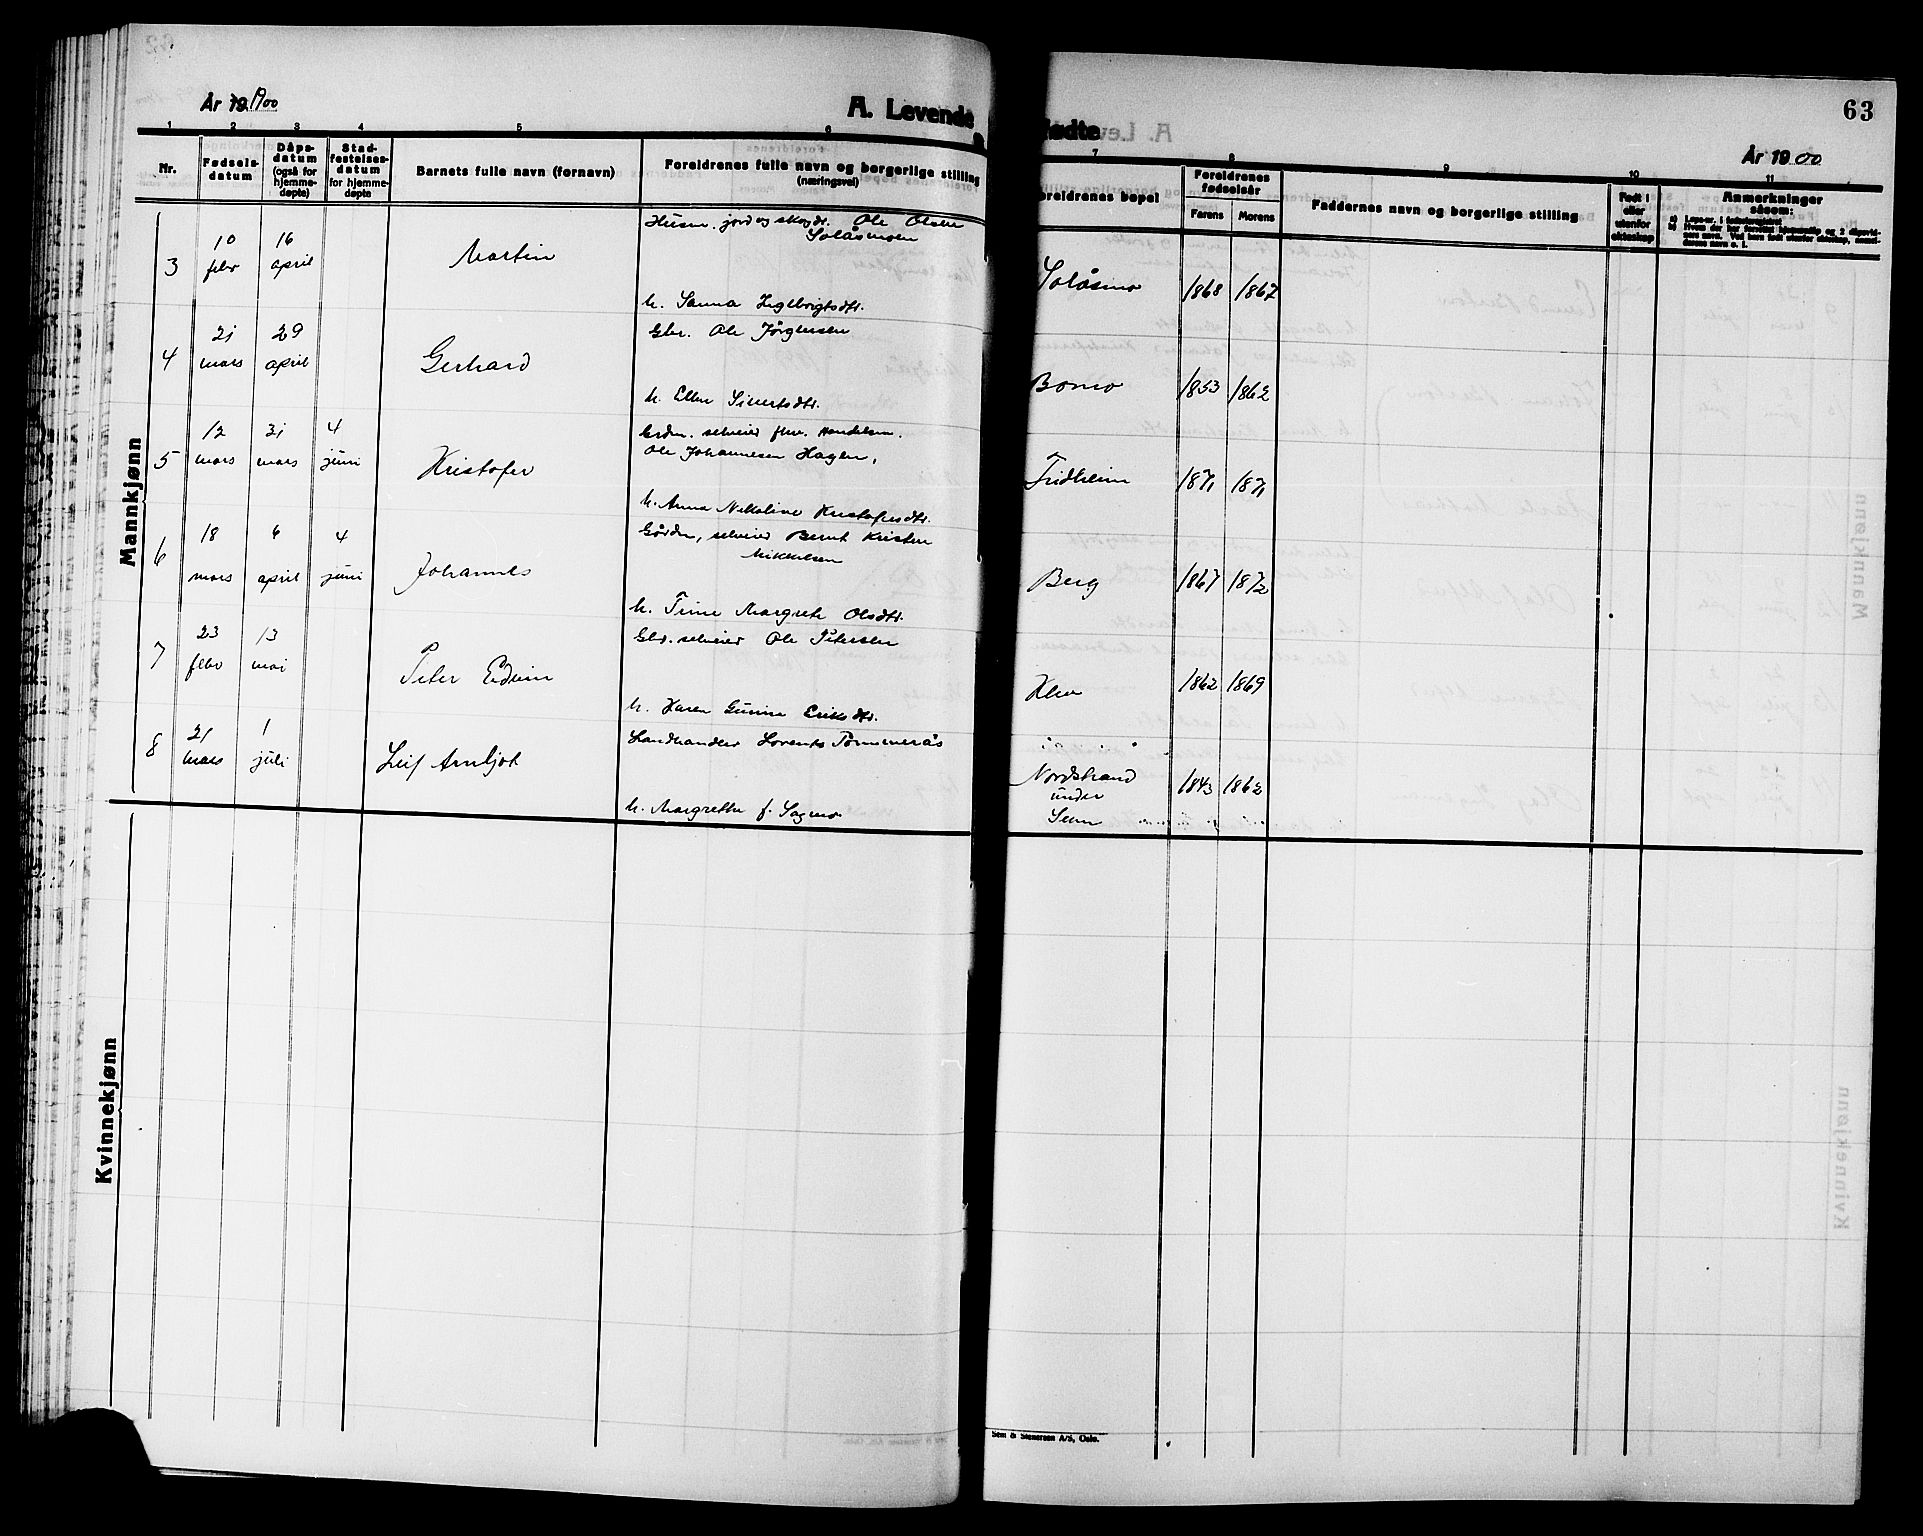 År 19 1900
A. Levende
fødte
63
År 1900
1 2 3 4 5 6
7 8 9 10 11
Nr.
Fødsels-
datum
Dåps-
datum
(også for
hjemme-
døpte)
Stad-
festelses-
datum
for hjemme-
døpte
Barnets fulle navn (fornavn)
Foreldrenes fulle navn og borgerlige stilling
(næringsvei)
Foreldrenes bopel
Foreldrenes
fødselsår
Farens Morens
Faddernes navn og borgerlige stilling
Født i
eller
utenfor
ekteskap
Anmerkninger
såsom:
Mannkjønn
3
10
febr
16
april
Martin
Husm. jord og skogdr. Ole Olsen
Solåsmoen
h. Sanna Ingebrigtsdtr.
Solåsmo 1868 1867
4
21
mars
29
april
Gerhard
Gbr. Ole Jørgensen
h. Ellen Sivertsdtr.
Bomo 1853 1862
5
12
mars
31
mars
4
juni
Kristofer
Grdm. selveier fhv. Handelsm.
Ole Johannesen Hagen,
h. Anna Nikoline Kristofersdtr.
Fridheim 1871 1871
6
18
mars
6
april
4
juni
Johannes
Gårdm, selveier Bernt Kristen
Mikkelsen
h. Trine Margrete Olsdtr.
Berg 1867 1872
7
23
febr
13
mai
Peter Edvin
Gbr. selveier Ole Petersen
h. Karen Gurine Eriksdtr.
Klev 1862 1869
8
21
mars
1
juli
Leif Arnljot
Landhandler Lorents Tømmerås
h. Margrethe f. Sagmo
Nordstrand
under
Sem
1843 1862
Kvinnekjønn
Sem & Stenersen A/S, Oslo.